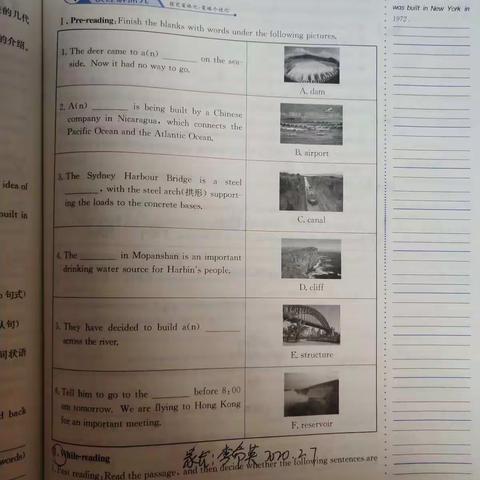 的几代
的介绍。
was built in New York in
1972.
Ⅰ. Pre-reading: Finish the blanks with words under the following pictures.
1. The deer came to a(n) ________ on the sea-
side. Now it had no way to go.
A. dam
2. A(n) ________ is being built by a Chinese
company in Nicaragua, which connects the
Pacific Ocean and the Atlantic Ocean.
B. airport
3. The Sydney Harbour Bridge is a steel
________, with the steel arch(拱形) support-
ing the loads to the concrete bases.
C. canal
4. The ________ in Mopanshan is an important
drinking water source for Harbin's people.
D. cliff
5. They have decided to build a(n) ________
across the river.
E. structure
6. Tell him to go to the ________ before 8:00
am tomorrow. We are flying to Hong Kong
for an important meeting.
F. reservoir
idea of
built in
句式)
从句)
间状语
back
words)
Ⅱ. While-reading
2020.2.7
1. Fast reading: Read the passage, and then decide whether the following sentences are